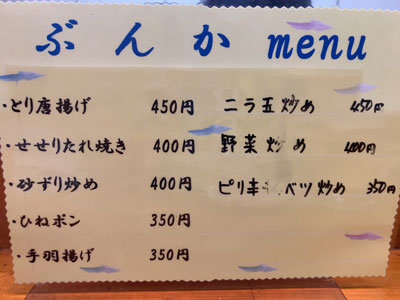 ぶんか menu
・とり唐揚げ 450円
・せせりたれ焼き 400円
・砂ずり炒め 400円
・ひねポン 350円
・手羽揚げ 350円
ニラ玉炒め 450円
野菜炒め 400円
ピリ辛キャベツ炒め 350円